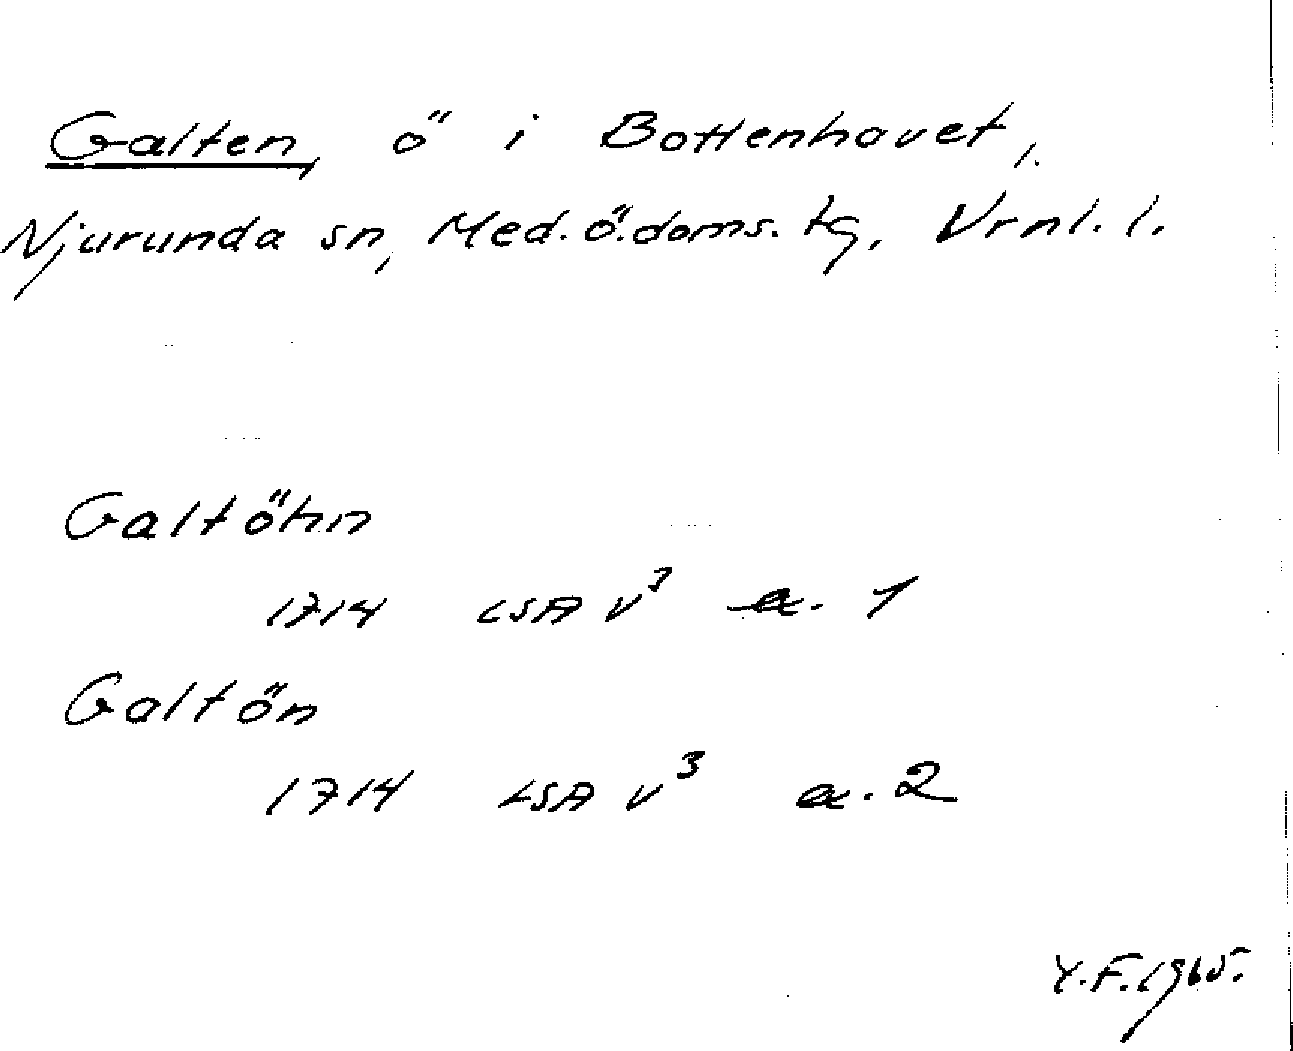 Galten, ö i Bottenhavet,
Njurunda sn, Med. ö. doms. tg, Vrnl. l.
Galtöhn
1714 LSA v³ a. 1
Galtön
1714 LSA v³ a. 2
Y. F. 1965.